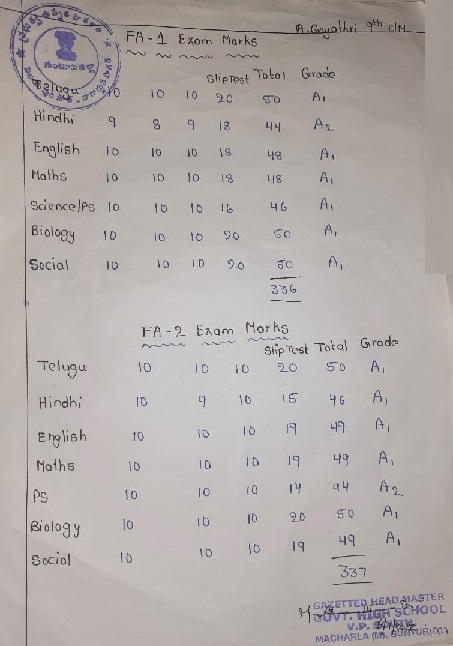 A. Gayathri 9th c/M
FA-1 Exam Marks
Slip Test Total Grade
Telugu 10 10 10 20 50 A1
Hindhi 9 8 9 18 44 A2
English 10 10 10 18 48 A1
Maths 10 10 10 18 48 A1
Science/PS 10 10 10 16 46 A1
Biology 10 10 10 20 50 A1
Social 10 10 10 20 50 A1
336
FA-2 Exam Marks
Slip Test Total Grade
Telugu 10 10 10 20 50 A1
Hindhi 10 9 10 15 46 A1
English 10 10 10 19 49 A1
Maths 10 10 10 19 49 A1
PS 10 10 10 14 44 A2
Biology 10 10 10 20 50 A1
Social 10 10 10 19 49 A1
337
GAZETTED HEAD MASTER
GOVT. HIGH SCHOOL
V.P. SOUTH
MACHARLA (M), GUNTUR(DT)